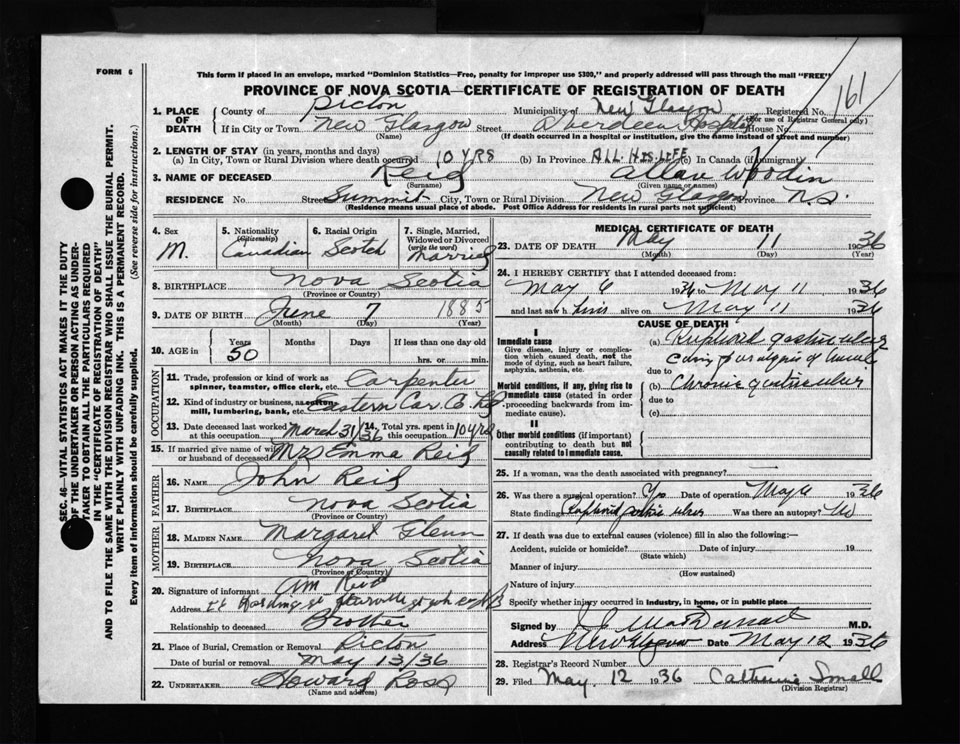 FORM 6
This form if placed in an envelope, marked "Dominion Statistics—Free, penalty for improper use $300," and properly addressed will pass through the mail "FREE"
PROVINCE OF NOVA SCOTIA—CERTIFICATE OF REGISTRATION OF DEATH
161
1. PLACE OF DEATH
County of Pictou Municipality of New Glasgow Registered No.
(For use of Registrar General only)
If in City or Town New Glasgow Street Aberdeen Hospital House No.
(Name) (If death occurred in a hospital or institution, give the name instead of street and number)
2. LENGTH OF STAY (in years, months and days)
(a) In City, Town or Rural Division where death occurred 10 YRS (b) In Province ALL HIS LIFE (c) In Canada (if immigrant)
3. NAME OF DECEASED Reid Allan Woodin
(Surname) (Given name or names)
RESIDENCE No. Street Summit City, Town or Rural Division New Glasgow Province N.S.
(Residence means usual place of abode. Post Office Address for residents in rural parts not sufficient)
4. Sex M.
5. Nationality (Citizenship) Canadian
6. Racial Origin Scotch
7. Single, Married, Widowed or Divorced (write the word) Married
8. BIRTHPLACE Nova Scotia
(Province or Country)
9. DATE OF BIRTH June 7 1885
(Month) (Day) (Year)
10. AGE in Years 50 Months Days If less than one day
hrs. or min.
OCCUPATION
11. Trade, profession or kind of work as spinner, teamster, office clerk, etc. Carpenter
12. Kind of industry or business, as cotton mill, lumbering, bank, etc. Eastern Car Co. Ltd
13. Date deceased last worked at this occupation March 31/36 14. Total yrs. spent in this occupation 10 yrs
15. If married give name of wife or husband of deceased Mrs Emma Reid
FATHER
16. NAME John Reid
17. BIRTHPLACE Nova Scotia
(Province or Country)
MOTHER
18. MAIDEN NAME Margaret Glenn
19. BIRTHPLACE Nova Scotia
(Province or Country)
20. Signature of informant Reid
Address
Relationship to deceased Brother
21. Place of Burial, Cremation or Removal Pictou
Date of burial or removal May 13/36
22. UNDERTAKER Howard Ross
(Name and address)
MEDICAL CERTIFICATE OF DEATH
23. DATE OF DEATH May 11 1936
(Month) (Day) (Year)
24. I HEREBY CERTIFY that I attended deceased from:
May 6 1936 to May 11 1936
and last saw him alive on May 11 1936
CAUSE OF DEATH
I
Immediate cause
Give disease, injury or complication which caused death, not the mode of dying, such as heart failure, asphyxia, asthenia, etc.
(a) Ruptured gastric ulcer
due to
Morbid conditions, if any, giving rise to immediate cause (stated in order of proceeding backwards from immediate cause).
(b) Chronic gastric ulcer
due to
(c)
II
Other morbid conditions (if important) contributing to death but not causally related to immediate cause.
25. If a woman, was the death associated with pregnancy?
26. Was there a surgical operation? Date of operation May 6 1936
State finding Ruptured gastric ulcer Was there an autopsy? No
27. If death was due to external causes (violence) fill in also the following:—
Accident, suicide or homicide? Date of injury 19
(State which)
Manner of injury
(How sustained)
Nature of injury
Specify whether injury occurred in industry, in home, or in public place
Signed by M.D.
Address New Glasgow Date May 12 1936
28. Registrar's Record Number
29. Filed May. 12 1936 Catherine Small
(Division Registrar)
SEC. 46—VITAL STATISTICS ACT MAKES IT THE DUTY
OF THE UNDERTAKER OR PERSON ACTING AS UNDER-
TAKER TO OBTAIN ALL THE PARTICULARS REQUIRED
IN THE "CERTIFICATE OF REGISTRATION OF DEATH"
AND TO FILE THE SAME WITH THE DIVISION REGISTRAR WHO SHALL ISSUE THE BURIAL PERMIT.
WRITE PLAINLY WITH UNFADING INK. THIS IS A PERMANENT RECORD.
Every item of information should be carefully supplied. (See reverse side for instructions.)